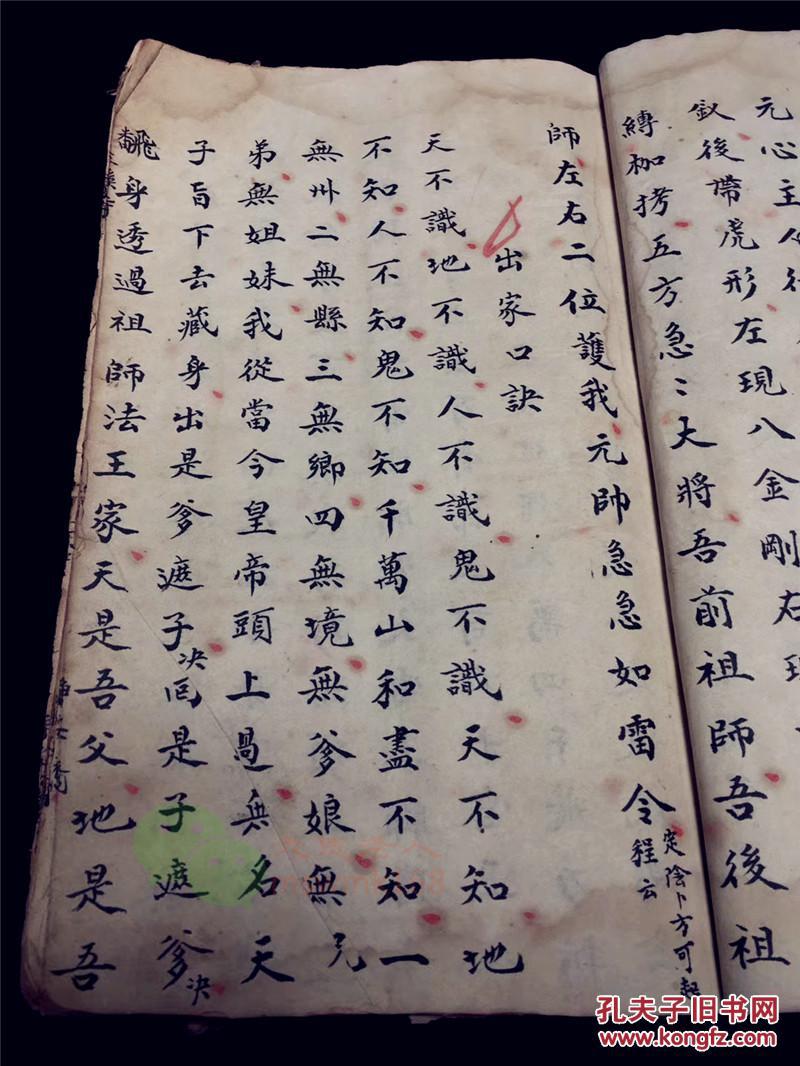 元心主人
釵後帶虎形左現八金剛右現
縛枷拷五方急〻大將吾前祖師吾後祖
師左右二位護我元帥急急如雷令定陰卜方可起程云
出家口訣
天不識地不識人不識鬼不識天不知地
不知人不知鬼不知千萬山和盡不知一
無州二無縣三無鄉四無境無爹娘無兄
弟無姐妹我從當今皇帝頭上過無名天
子盲下去藏身出是爹遮子决囘是子遮爹决
飛翻身透過祖師法王家天是吾父地是吾
孔夫子旧书网
www.kongfz.com